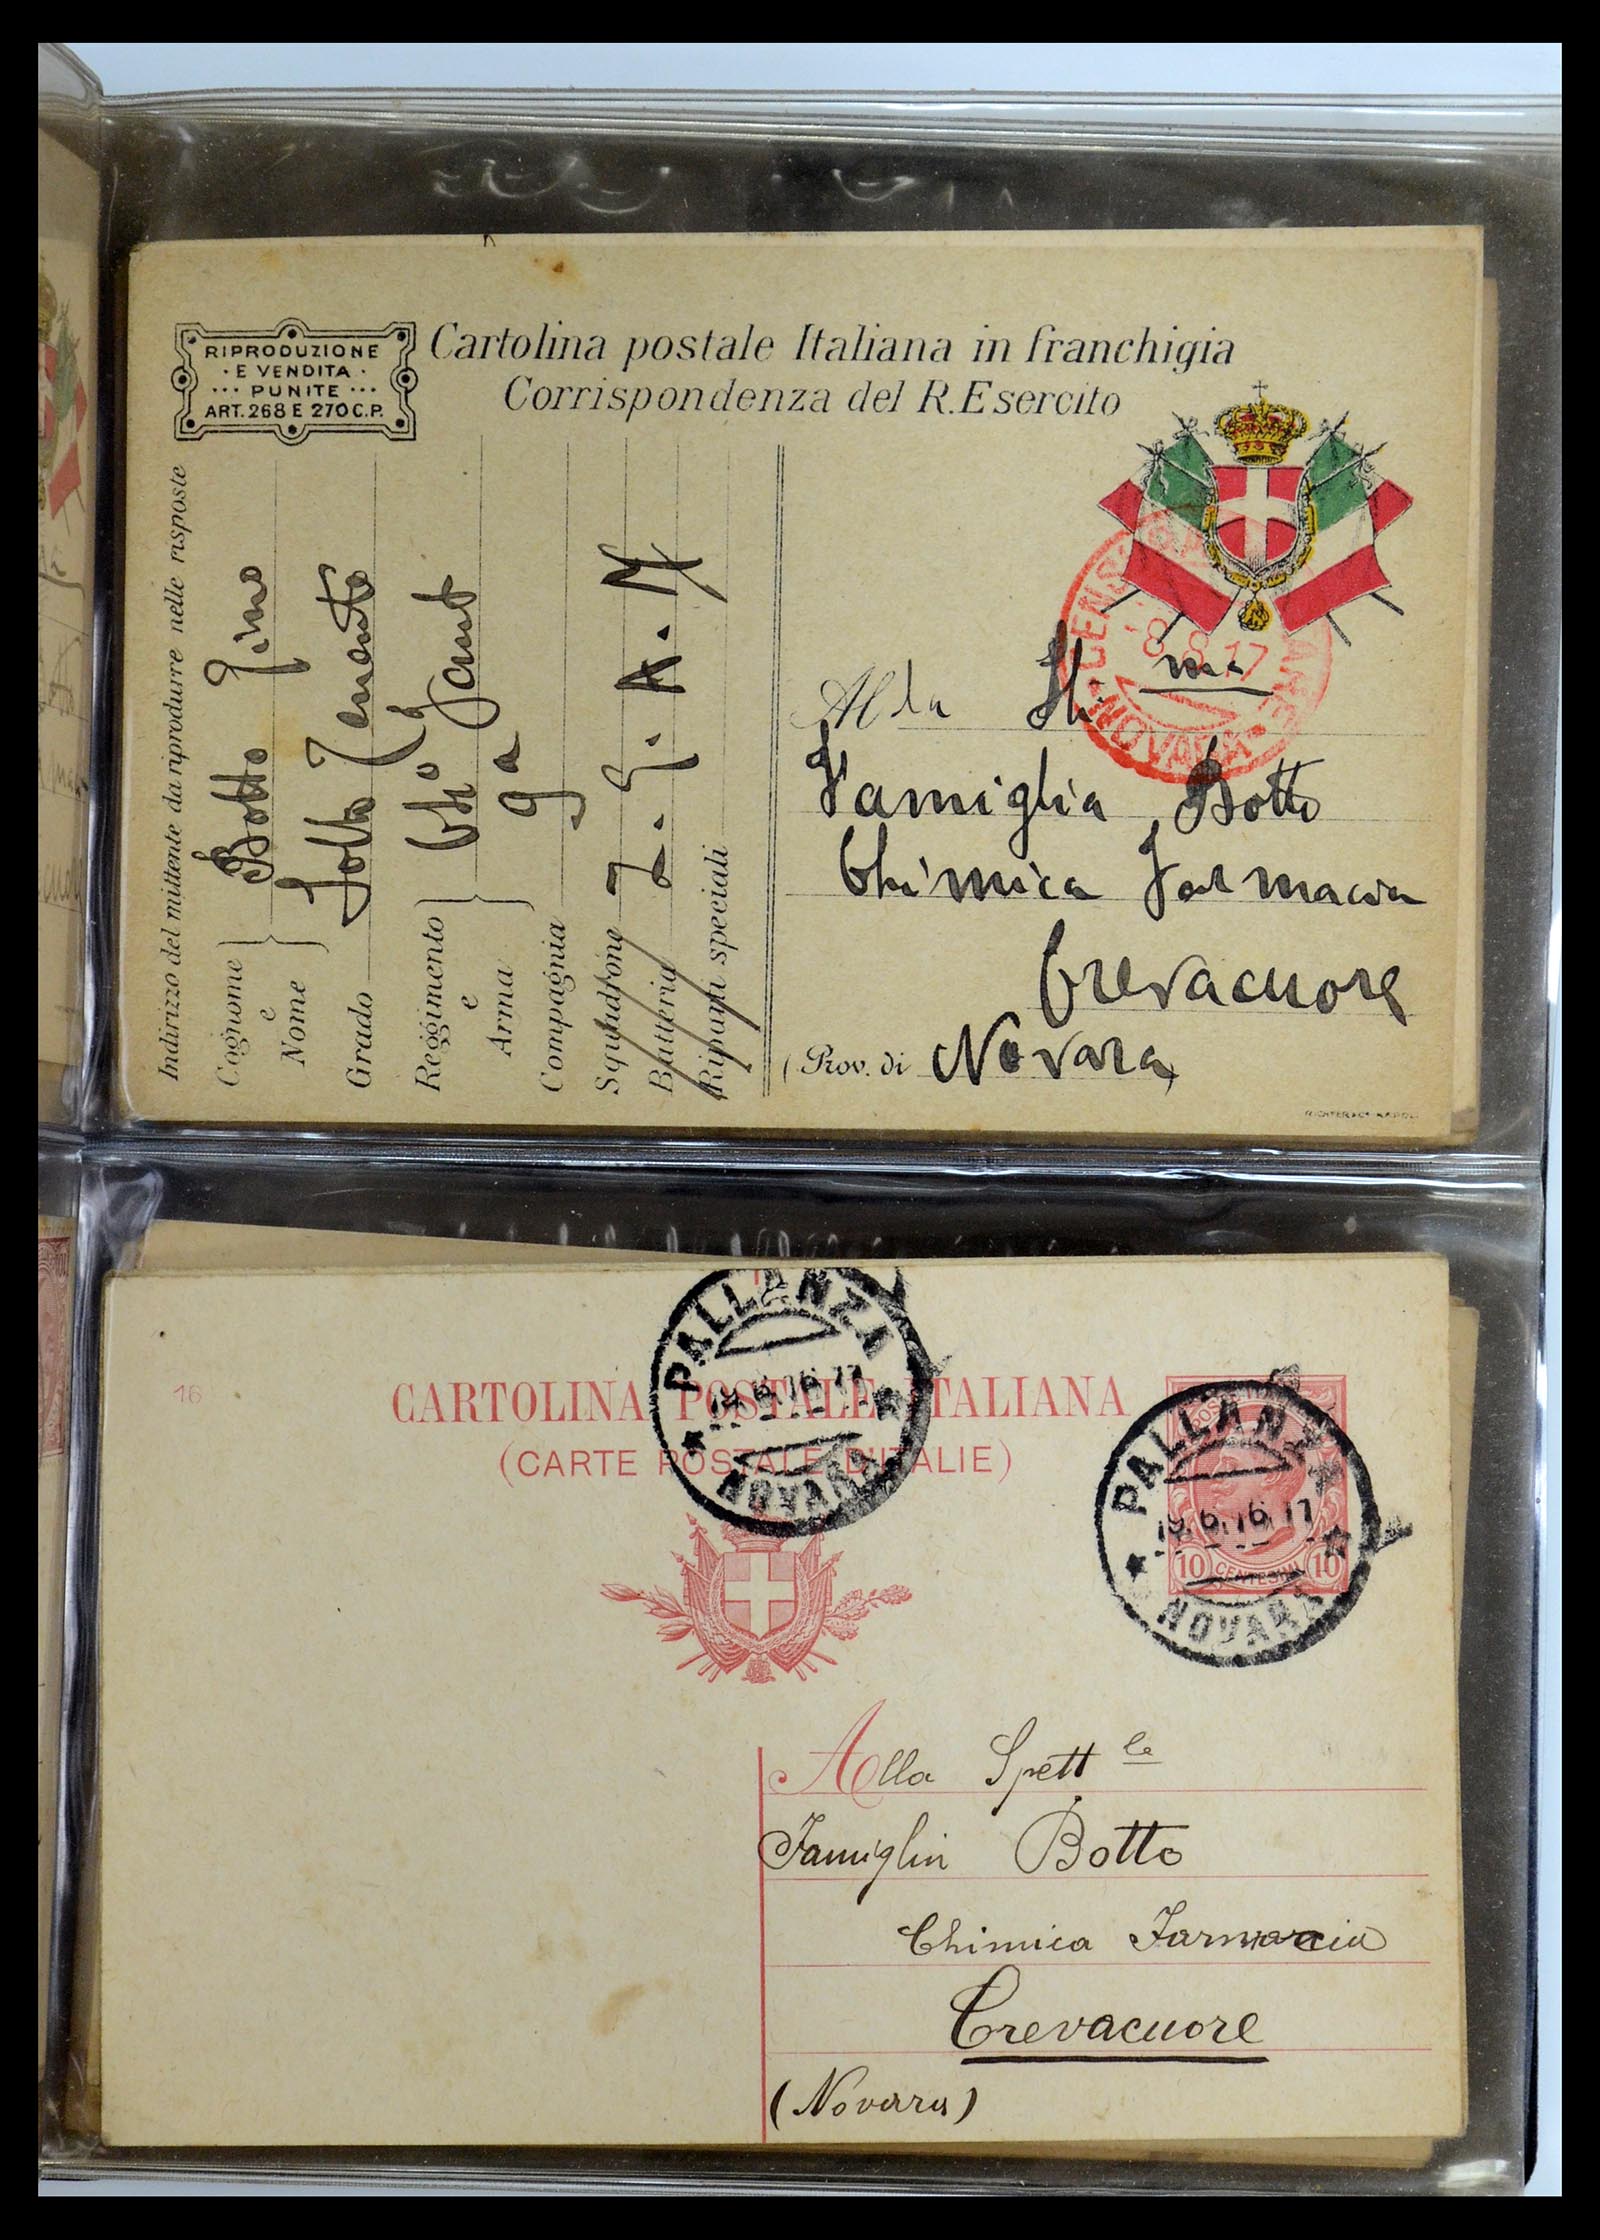 RIPRODUZIONE
· E VENDITA ·
··· PUNITE ···
ART. 268 E 270 C.P.
Cartolina postale Italiana in franchigia
Corrispondenza del R. Esercito
Indirizzo del mittente da riprodurre nelle risposte
Cognome e Nome } Botto Gino
Grado Sotto Tenente
Reggimento e Arma } Fant
Compagnia 9a
Squadrone
Batteria
Riparti speciali
Z. G. A. M
8 8 17
NOVARA
Alla Ill. ma
Famiglia Botto
Chimica Farmacia
Crevacuore
(Prov. di Novara)
RICHTER & C° NAPOLI
16
CARTOLINA POSTALE ITALIANA
(CARTE POSTALE D'ITALIE)
PALLANZA
19.6.16.17
NOVARA
PALLANZA
19.6.16 17
NOVARA
10 CENTESIMI 10
Alla Spett le
Famiglia Botto
Chimica Farmacia
Crevacuore
(Novara)